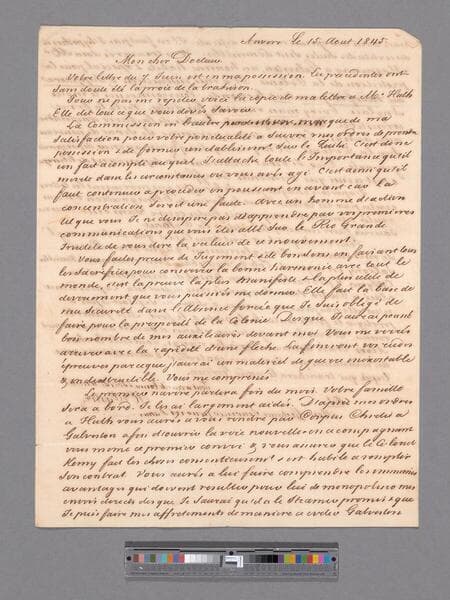 Anvers le 15 Aout 1845
Mon cher Docteur
Votre lettre du 7 Juin est en ma possession. Les précédentes ont
sans doute été la proie de la trahison.
Pour ne pas me répéter voici la copie de ma lettre à Mr. Huth
Elle dit tout ce que vous devez savoir.
La Commission ne saurait que de ma
satisfaction pour votre ponctualité a suivre mes ordres de prendre
possession & de former un établissement sur le C'est donc
un fait accompli auquel j'attache toute l'importance qu'il
mérite dans les circonstances où vous avez agi. C'est ainsi qu'il
faut continuer a procéder en poussant en avant car la
concentration serait une faute. Avec un homme d'action
tel que vous Je ne désespère pas d'apprendre par vos premières
communications que vous êtes allé sur le Rio Grande
Inutile de vous dire la valeur de ce mouvement.
Vous faites preuve de Jugement & de bon sens en faisant tous
les sacrifices pour conserver la bonne harmonie avec tout le
monde, c'est la preuve la plus manifeste & la plus utile de
dévouement que vous puissiez me donner. Elle fait la base de
ma sécurité dans l'absence forcée que Je suis obligé de
faire pour la prospérité de la Colonie. Dès que J'aurai poussé
bon nombre de mes auxiliaires devant moi Vous me verrez
arriver avec la rapidité d'une flèche. Là finiront vos rudes
épreuves parceque j'aurai un matériel de guerre
& indestructible. Vous me comprenez
Le premier navire partira fin du mois. Votre famille
sera a bord. Je les ai largement aidés. D'après mes ordres
a Huth vous aurez a vous rendre par Corpus Christi a
Galveston afin d'ouvrir la voie nouvelle en accompagnant
vous même ce premier convoi & vous assurer que le Colonel
Kinny fait les choses consciencieusement & est habile a remplir
son contrat. Vous aurez a lui faire comprendre les immenses
avantages qui doivent résulter pour lui de monopoliser mes
envois directs dès que Je saurai qu'il a le Steamer promis & que
Je puis faire mes affrètements de manière a éviter Galveston